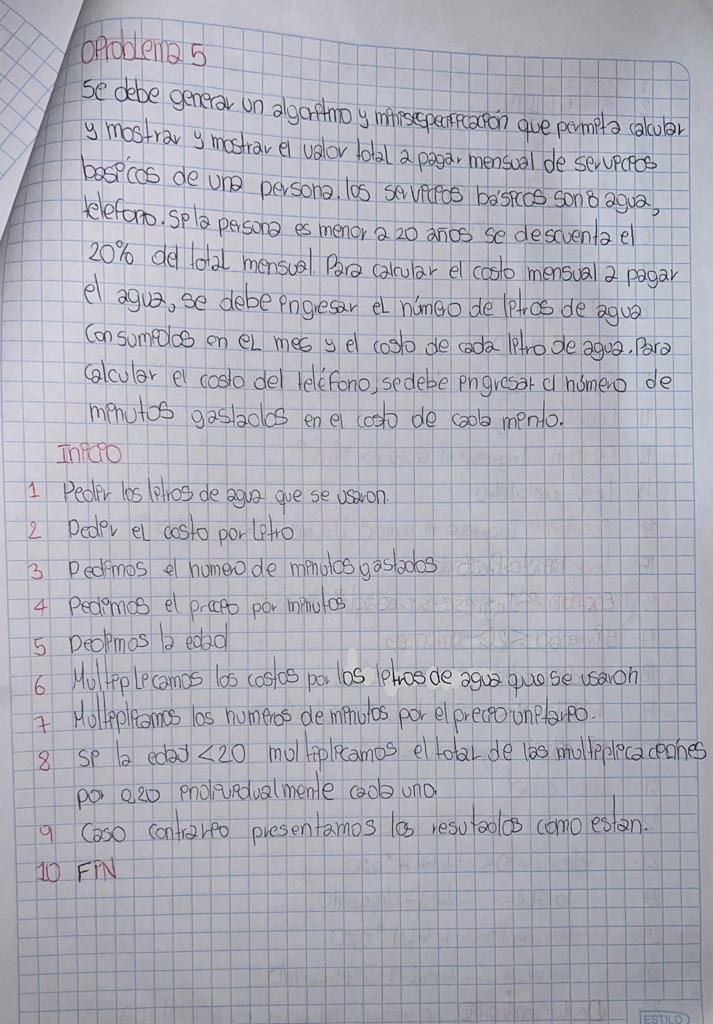 Problema 5
Se debe generar un algoritmo y miniespecificación que permita calcular
y mostrar y mostrar el valor total a pagar mensual de servicios
basicos de una persona. los servicios básicos son: agua,
telefono. Si la persona es menor a 20 años se descuenta el
20% del total mensual. Para calcular el costo mensual a pagar
el agua, se debe ingresar el número de litros de agua
Consumidos en el mes y el costo de cada litro de agua. Para
calcular el costo del teléfono, se debe ingresar el número de
minutos gastados en el costo de cada minto.
Inicio
1 Pedir los litros de agua que se usaron.
2 Pedir el costo por litro
3 Pedimos el numero de minutos gastados
4 Pedimos el precio por minutos
5 Pedimos la edad
6 Multiplicamos los costos por los litros de agua que se usaron
7 Multiplicamos los numeros de minutos por el precio unitario.
8 si la edad <20 multiplicamos el total de las multiplicaciones
por 0.20 individualmente cada uno.
9 Caso contrario presentamos los resutados como estan.
10 FIN
ESTILO